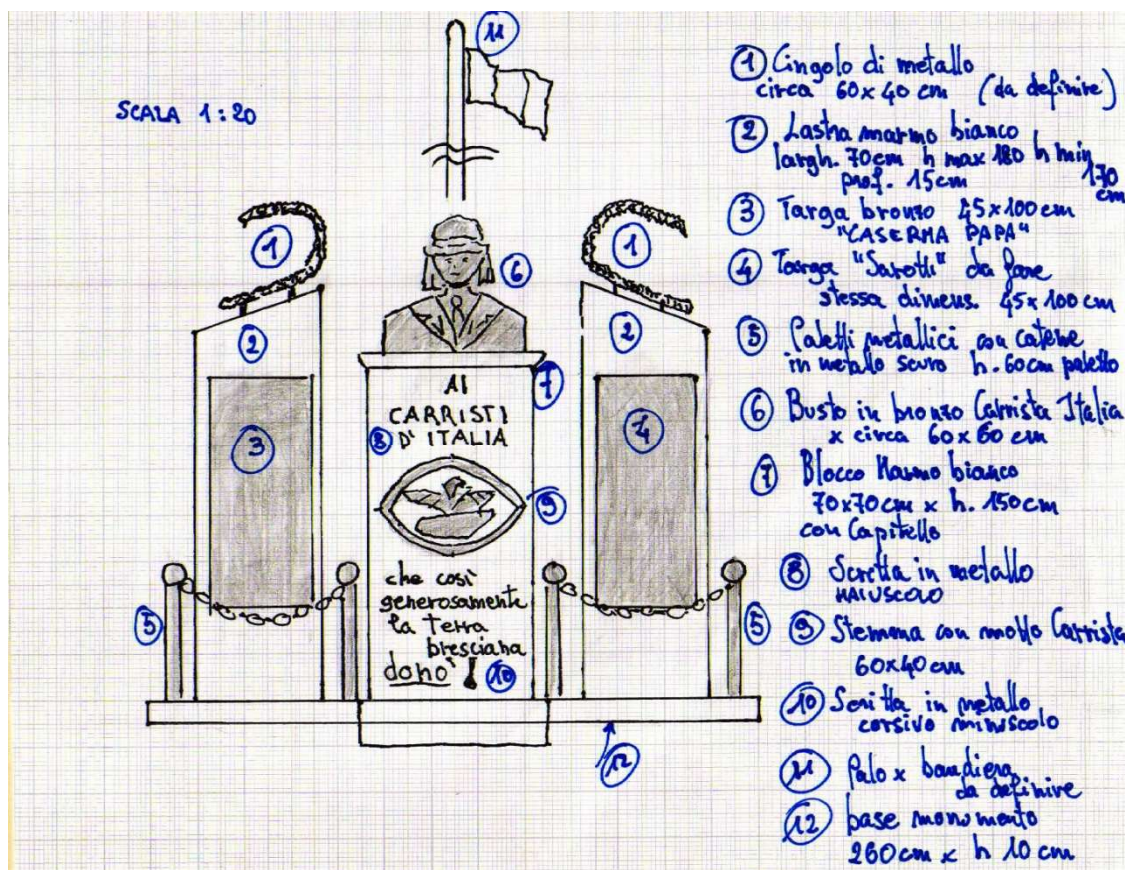 SCALA 1:20
11
1
1
6
2
2
7
AI
CARRISTI
8 D'ITALIA
3
4
9
che così
generosamente
la terra
bresciana
donò! 10
5
5
12
1 Cingolo di metallo
circa 60x40 cm (da definire)
2 Lastra marmo bianco
largh. 70cm h max 180 h min
prof. 15cm 170
cm
3 Targa bronzo 45x100cm
"CASERMA PAPA"
4 Targa "Sarotti" da fare
stessa dimens. 45x100 cm
5 Paletti metallici con catene
in metallo scuro h. 60cm paletto
6 Busto in bronzo Carrista Italia
x circa 60x60 cm
7 Blocco Marmo bianco
70x70cm x h. 150cm
con Capitello
8 Scritta in metallo
MAIUSCOLO
9 Stemma con motto Carrista
60x40cm
10 Scritta in metallo
corsivo minuscolo
11 Palo x bandiera
da definire
12 base monumento
260cm x h 10 cm